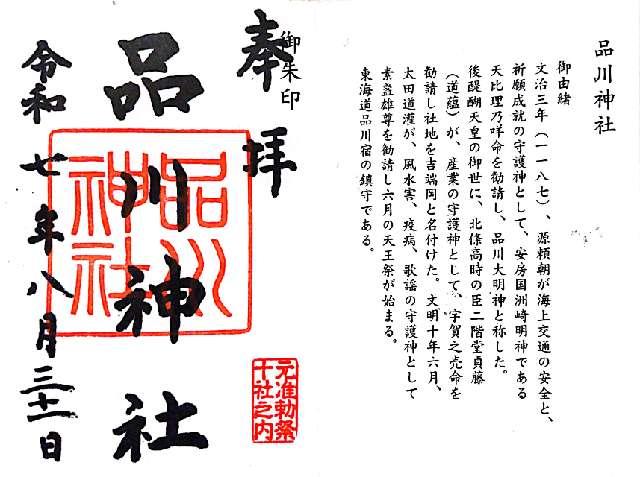 品川神社
御由緒
文治三年(一一八七)、源頼朝が海上交通の安全と、
祈願成就の守護神として、安房国洲崎明神である
天比理乃咩命を勧請し、品川大明神と称した。
後醍醐天皇の御世に、北條高時の臣二階堂貞藤
(道蘊)が、産業の守護神として、宇賀之売命を
勧請し社地を吉端岡と名付けた。文明十年六月、
太田道灌が、風水害、疫病、歌謡の守護神として
素盞雄尊を勧請し六月の天王祭が始まる。
東海道品川宿の鎮守である。
御朱印
奉拝
品川神社
品川
神社
元准勅祭
十社之内
令和七年八月三十一日